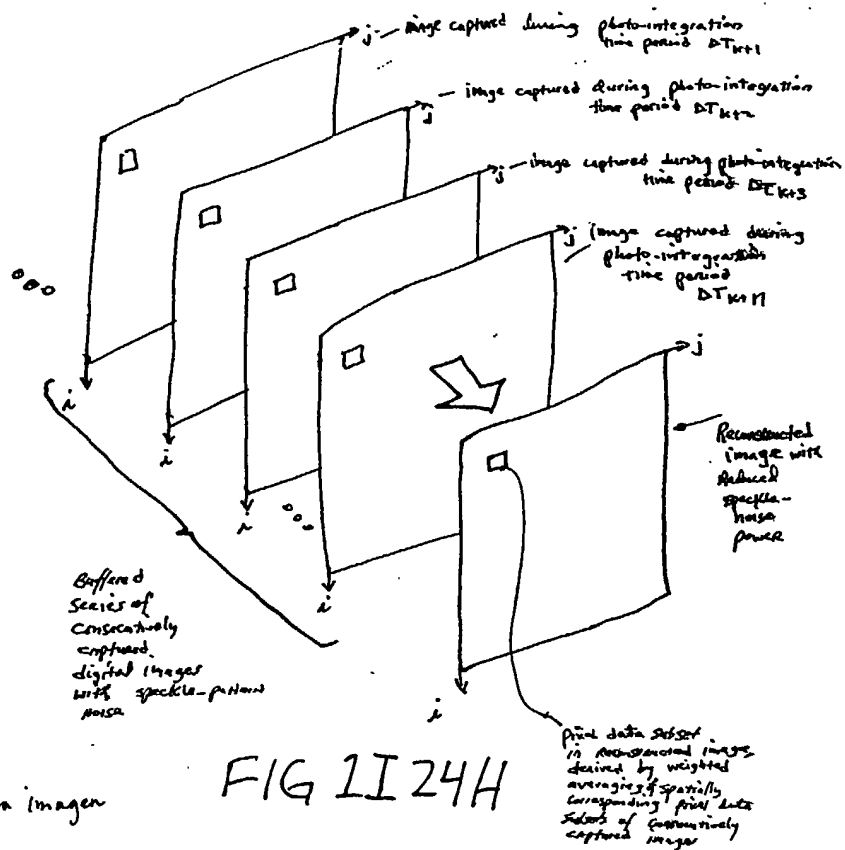 j - image captured during photo-integration
time period ΔTk+1
j - image captured during photo-integration
time period ΔTk+2
j - image captured during photo-integration
time period ΔTk+3
j image captured during
photo-integration
time period
ΔTk+n
j
i
i
i
i
i
Reconstructed
image with
Reduced
speckle-
noise
power
Buffered
Series of
Consecutively
captured
digital images
with speckle-pattern
noise
pixel data subset
in reconstructed image,
derived by weighted
averaging of spatially
corresponding pixel data
subsets of consecutively
captured images
FIG 1I24H
imagen